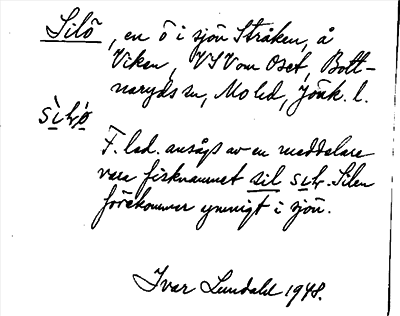 Silö, en ö i sjön Stråken, å
Viken, VSV om Oset, Bott-
naryds sn, Mo hd, Jönk. l.
F. led. ansågs av en meddelare
vara fisknamnet sil. Silen
förekommer ymnigt i sjön.
Ivar Lundahl 1948.